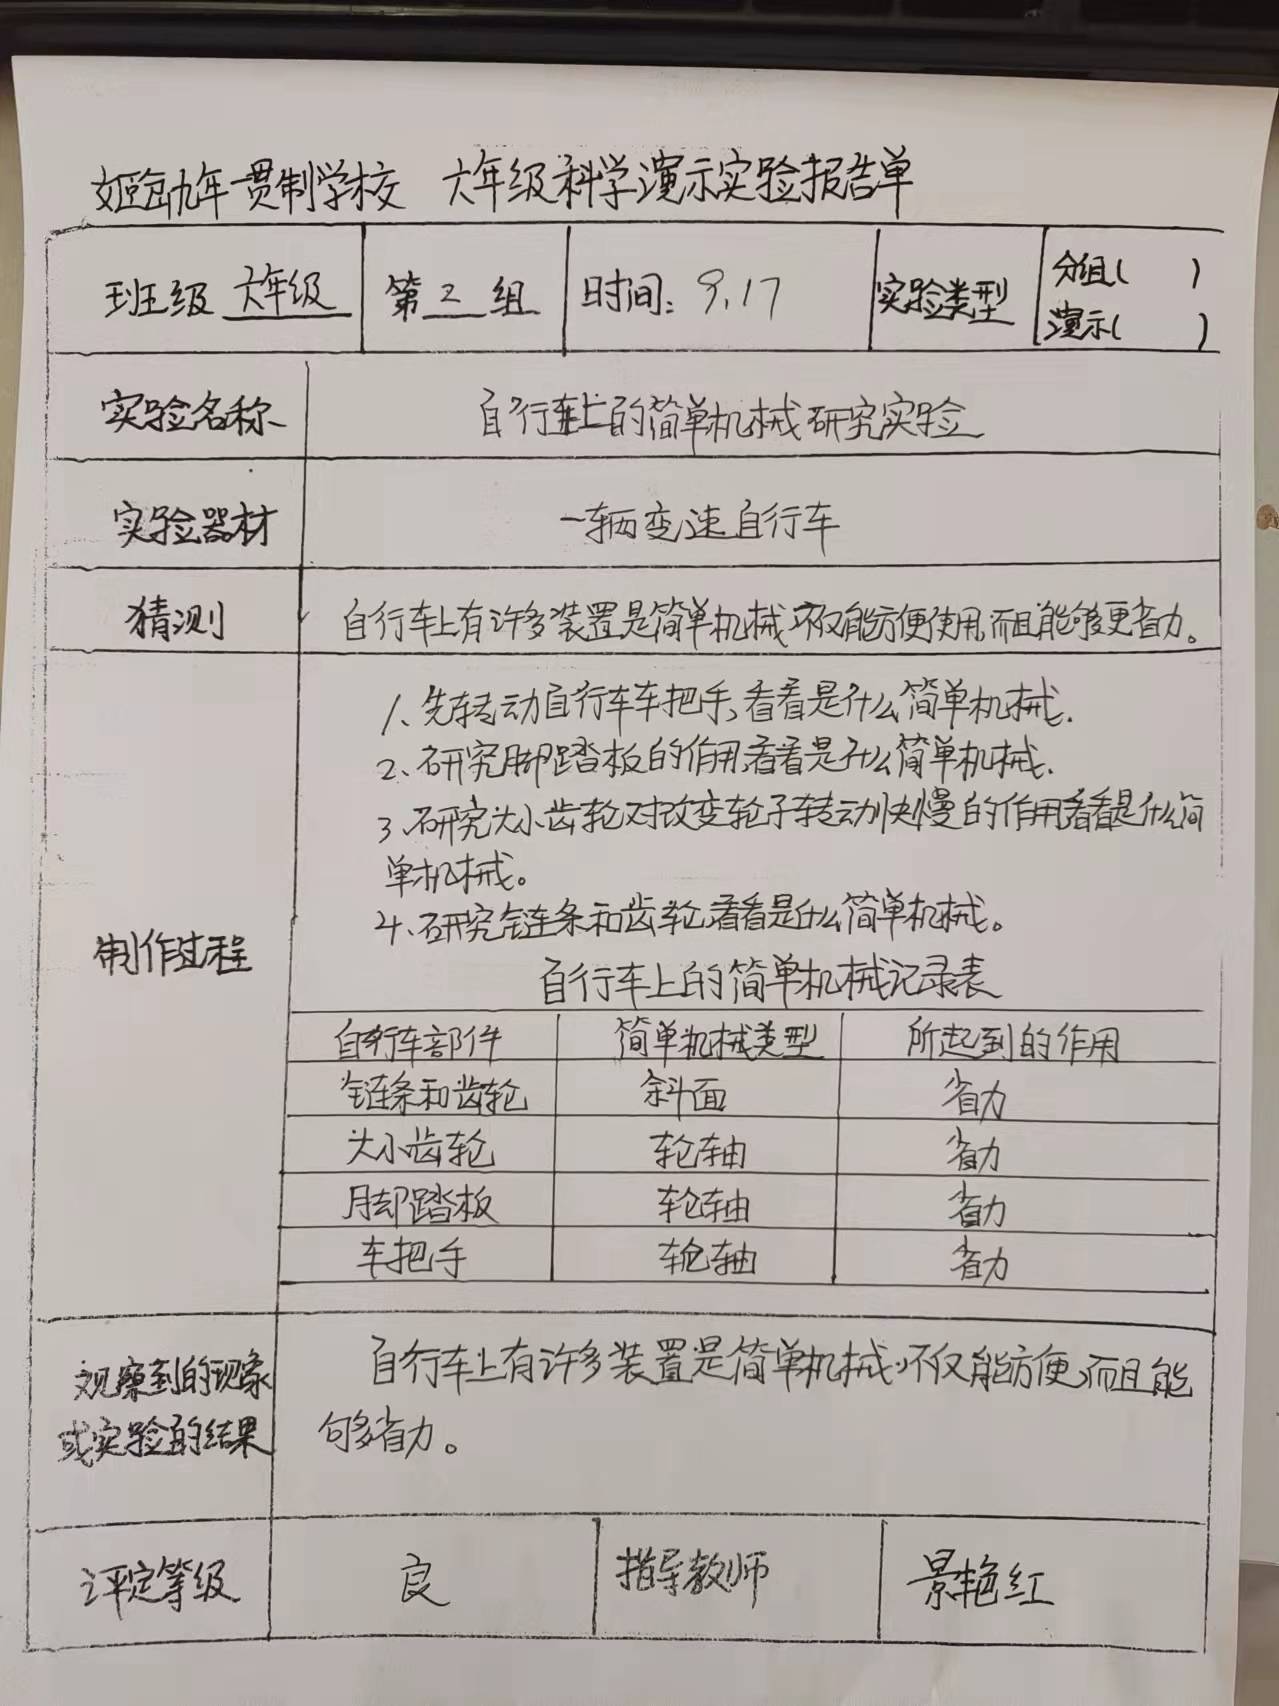 九年一贯制学校 六年级科学演示实验报告单
班级 六年级 第 2 组 时间: 9.17 实验类型 分组( )
演示( )
实验名称 自行车上的简单机械研究实验
实验器材 一辆变速自行车
猜测 自行车上有许多装置是简单机械,不仅能方便使用,而且能够更省力。
制作过程
1、先转动自行车车把手,看看是什么简单机械.
2、研究脚踏板的作用,看看是什么简单机械.
3、研究大小齿轮对改变轮子转动快慢的作用看看是什么简
单机械。
4、研究链条和齿轮,看看是什么简单机械。
自行车上的简单机械记录表
自行车部件 简单机械类型 所起到的作用
链条和齿轮 斜面 省力
大小齿轮 轮轴 省力
脚踏板 轮轴 省力
车把手 轮轴 省力
观察到的现象
或实验的结果
自行车上有许多装置是简单机械,不仅能方便,而且能
够省力。
评定等级 良 指导教师 景艳红